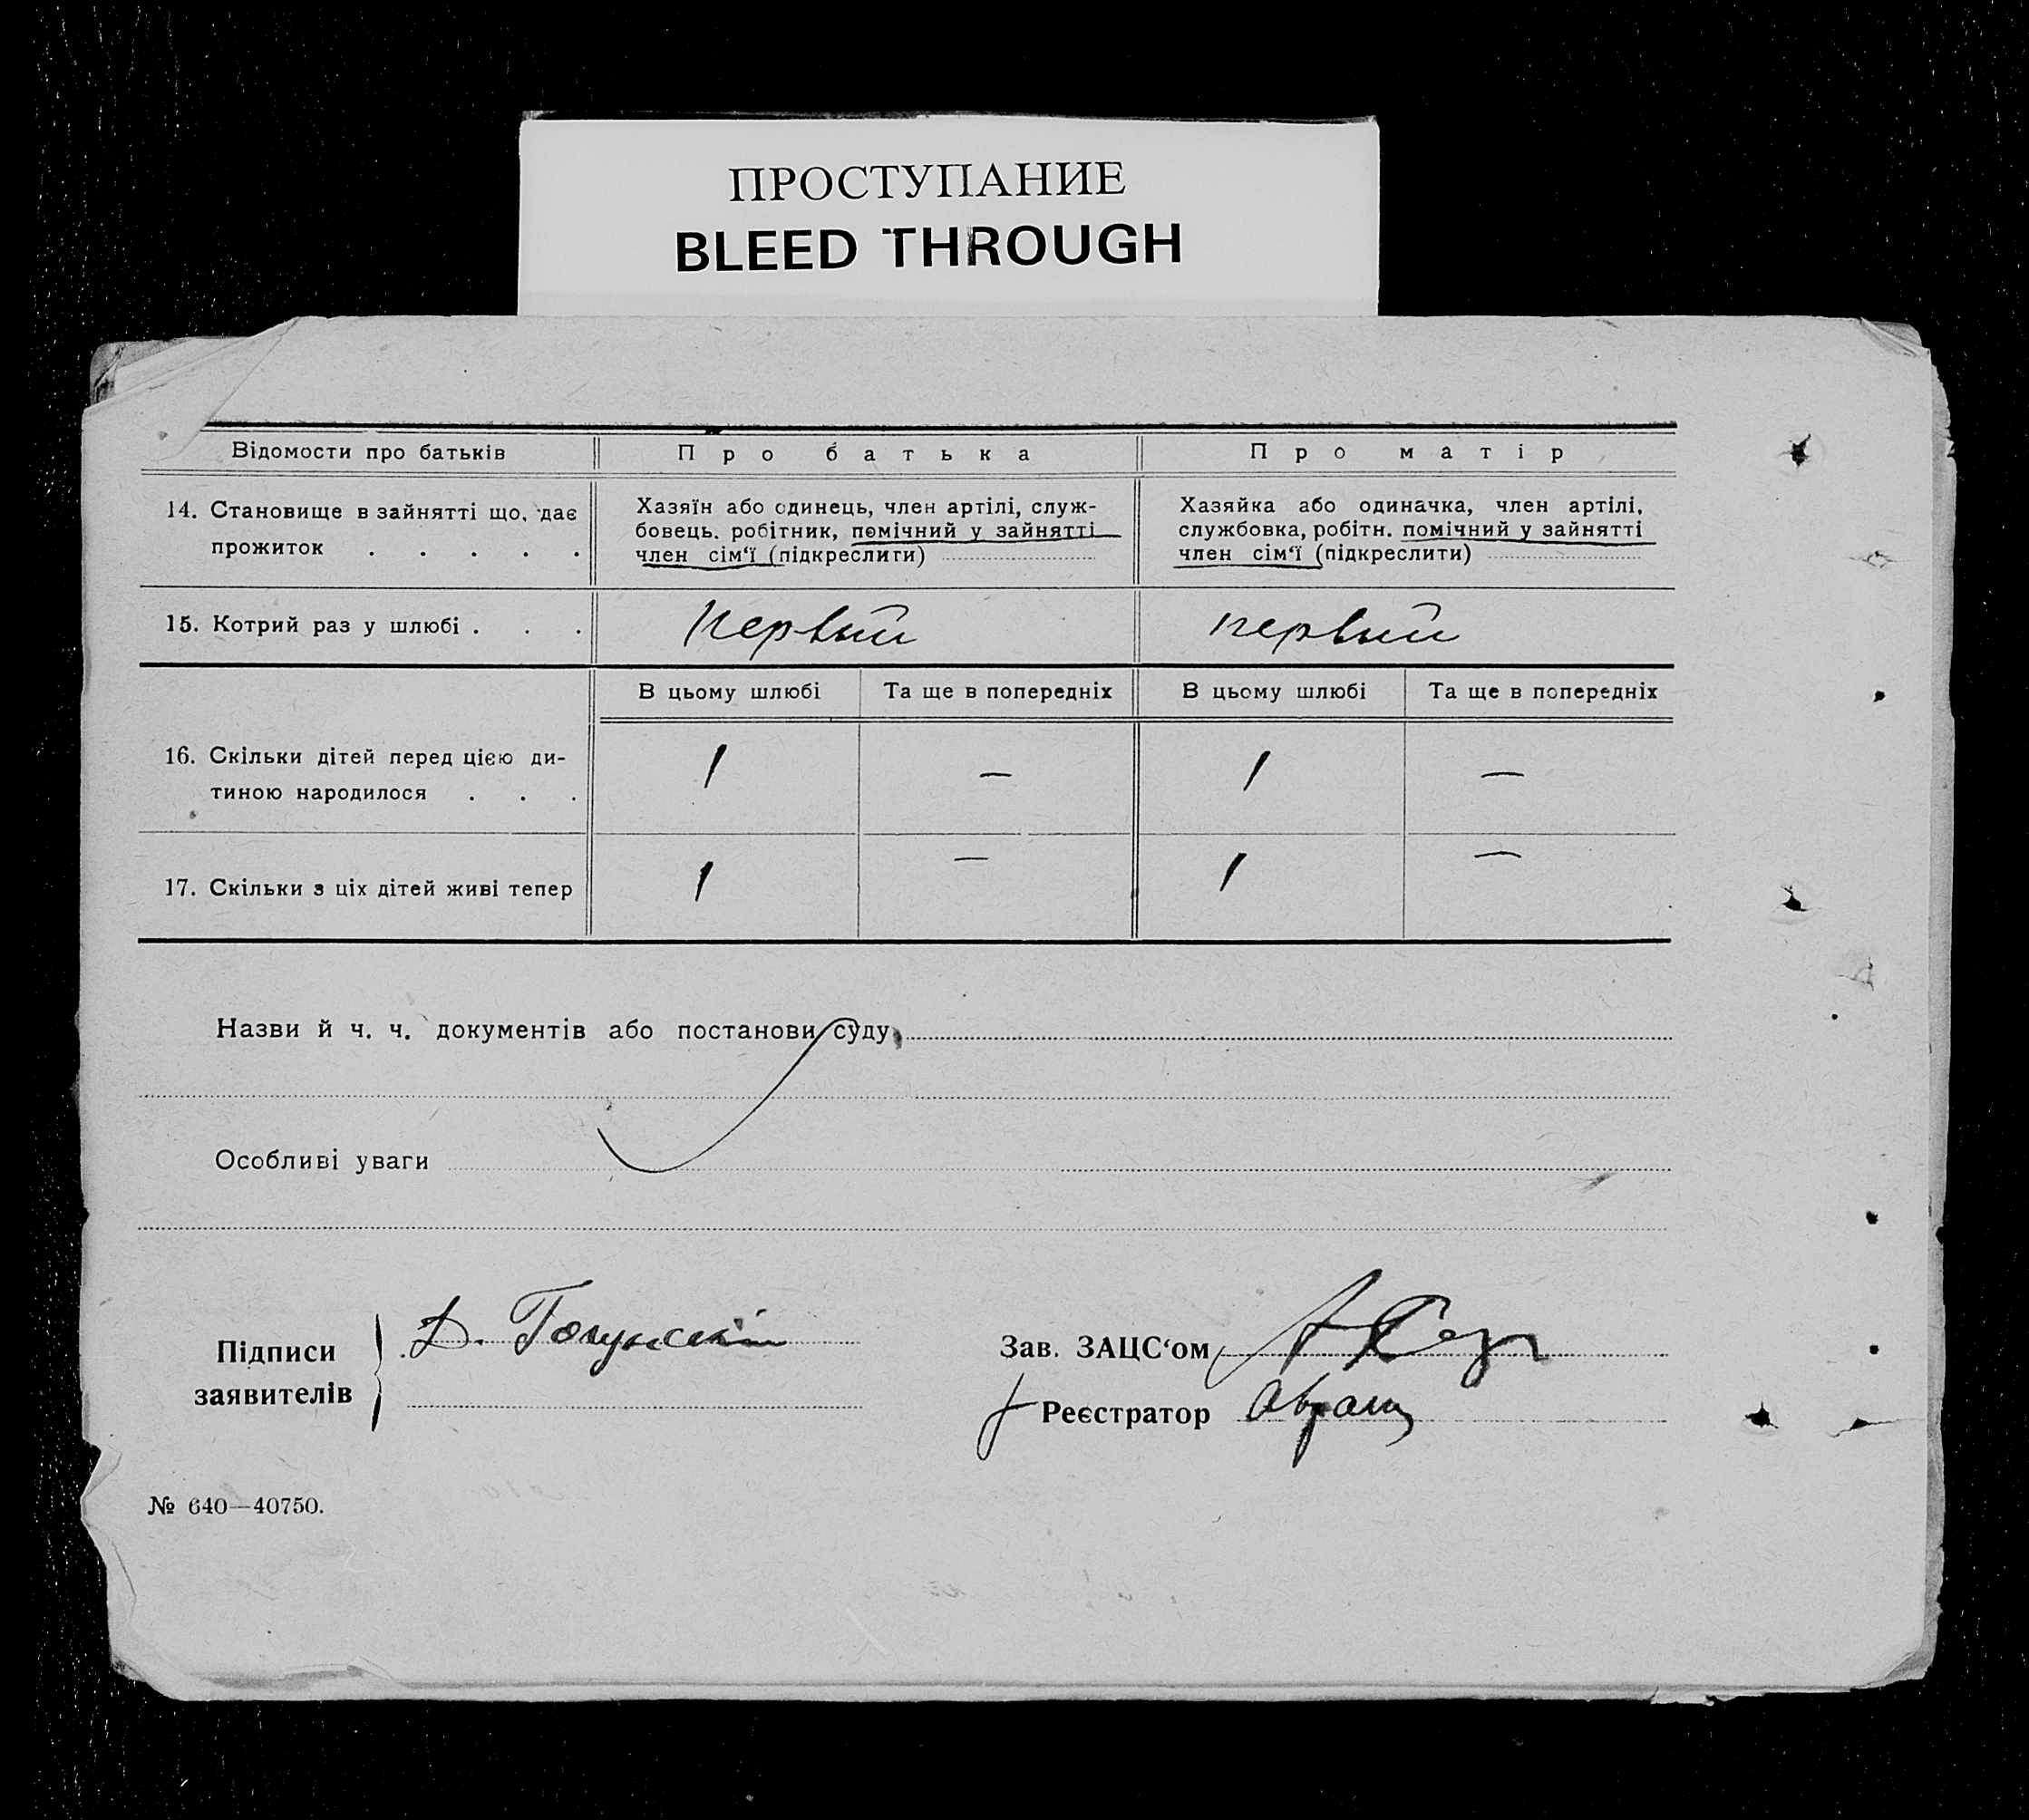 ПРОСТУПАНИЕ
BLEED THROUGH
Відомости про батьків Про батька Про матір
14. Становище в зайнятті що, дає
прожиток . . . . .
Хазяїн або одинець, член артілі, служ-
бовець. робітник, помічний у зайнятті
член сім‘ї (підкреслити)
Хазяйка або одиначка, член артілі,
службовка, робітн. помічний у зайнятті
член сім‘ї (підкреслити)
15. Котрий раз у шлюбі . . . Первый первый
В цьому шлюбі Та ще в попередніх В цьому шлюбі Та ще в попередніх
16. Скільки дітей перед цією ди-
тиною народилося . . . 1 — 1 —
17. Скільки з ціх дітей живі тепер 1 — 1 —
Назви й ч. ч. документів або постанови суду
Особливі уваги
Підписи
заявителів
Д.
Зав. ЗАЦС‘ом
Реєстратор
№ 640—40750.